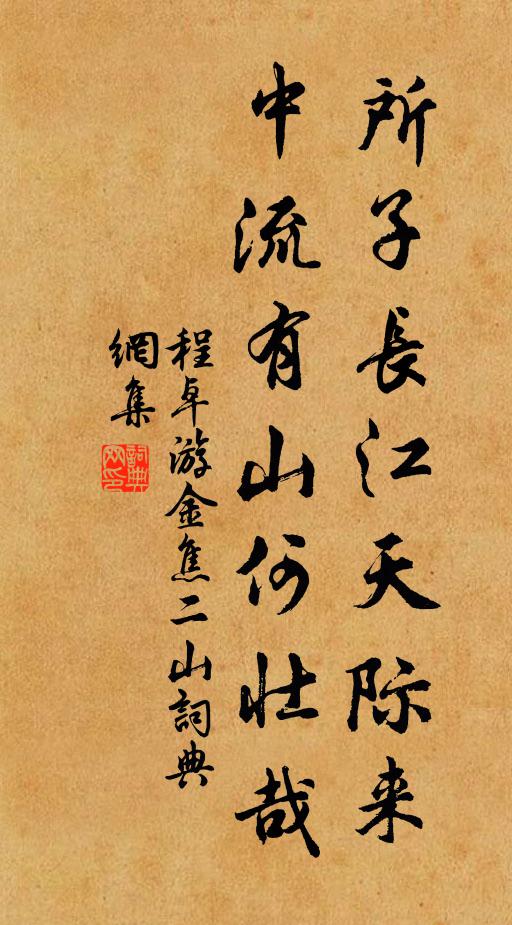 所子長江天际来
中流有山何壮哉
程卓游金焦二山詞典
網集
詞典
网印